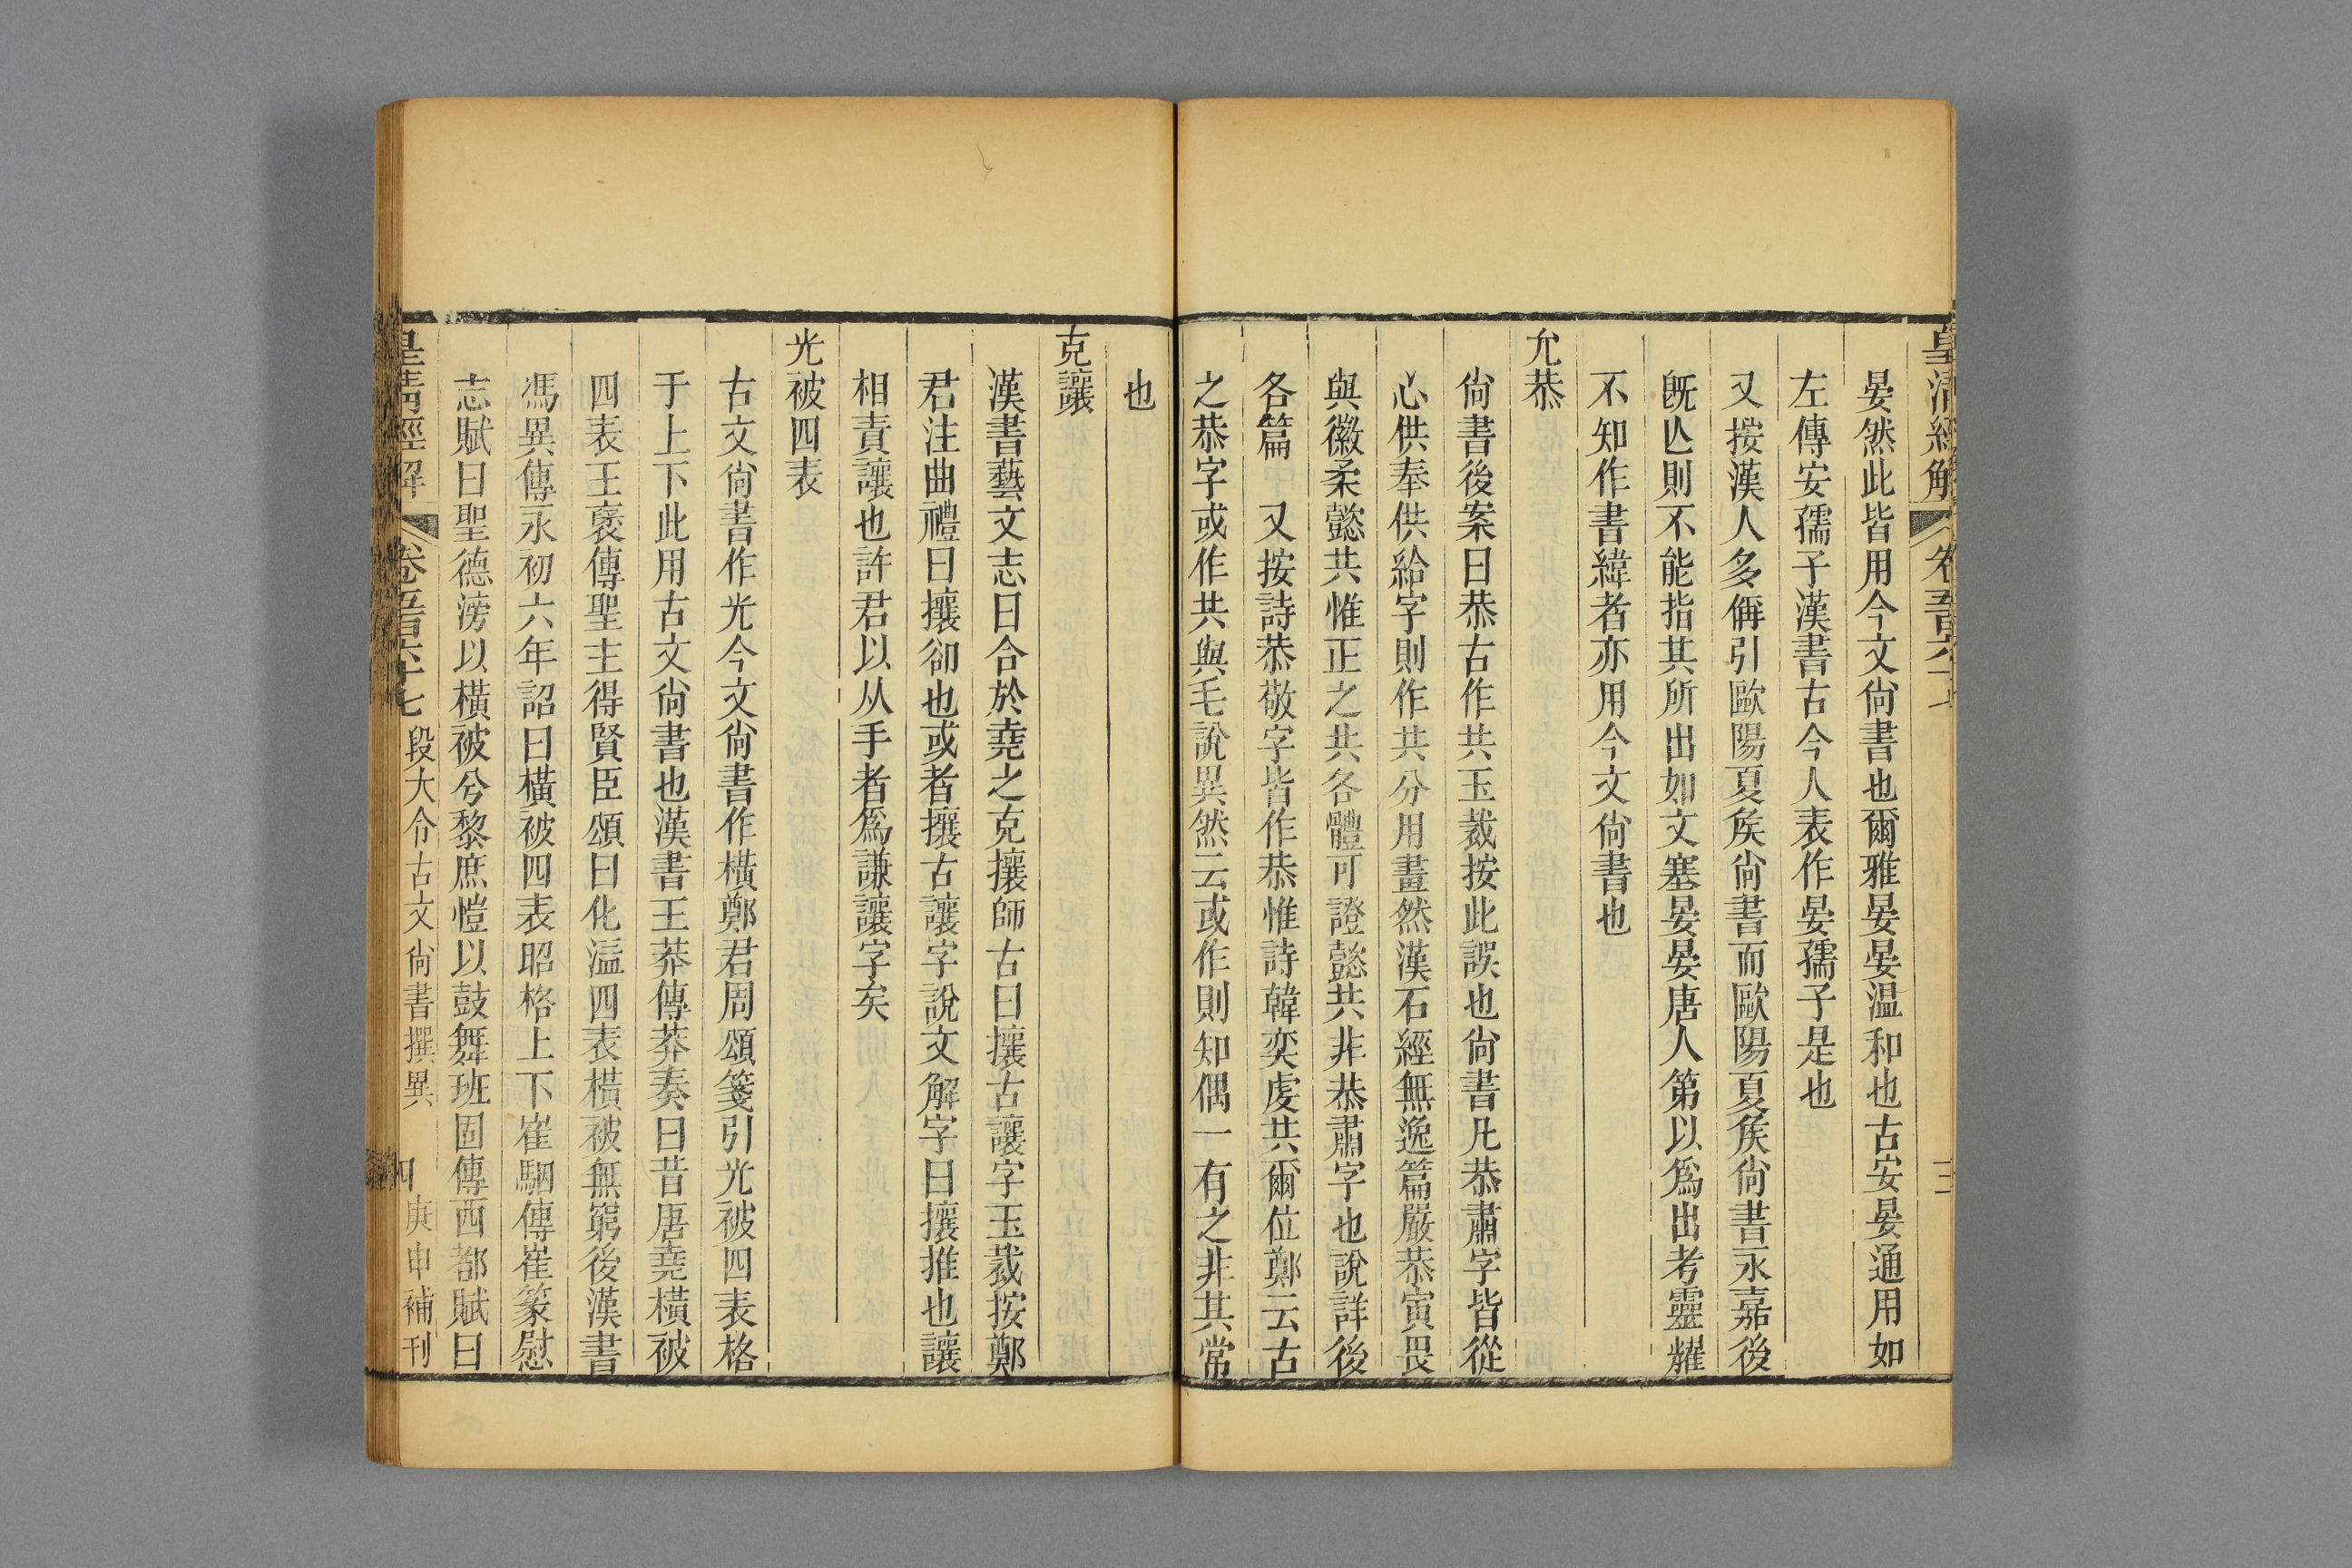 皇清經解 卷五百六十七 三
晏然此皆用今文尙書也爾雅晏晏温和也古安晏通用如
左傳安孺子漢書古今人表作晏孺子是也
又按漢人多偁引歐陽夏矦尙書而歐陽夏矦尙書永嘉後
旣亾則不能指其所出如文塞晏晏唐人第以爲出考靈耀
不知作書緯者亦用今文尙書也
允恭
尙書後案曰恭古作共玉裁按此誤也尙書凡恭肅字皆從
心供奉供給字則作共分用畫然漢石經無逸篇嚴恭寅畏
與徽柔懿共惟正之共各體可證懿共非恭肅字也說詳後
各篇 又按詩恭敬字皆作恭惟詩韓奕虔共爾位鄭云古
之恭字或作共與毛說異然云或作則知偶一有之非其常
也
克讓
漢書藝文志曰合於堯之克攘師古曰攘古讓字玉裁按鄭
君注曲禮曰攘卻也或者攘古讓字說文解字曰攘推也讓
相責讓也許君以从手者爲謙讓字矣
光被四表
古文尙書作光今文尙書作橫鄭君周頌箋引光被四表格
于上下此用古文尙書也漢書王莽傳莽奏曰昔唐堯橫被
四表王褒傳聖主得賢臣頌曰化溢四表橫被無窮後漢書
馮異傳永初六年詔曰橫被四表昭格上下崔駰傳崔篆慰
志賦曰聖德滂以橫被兮黎庶愷以鼓舞班固傳西都賦曰
皇清經解 卷五百六十七 段大令古文尙書撰異 四 庚申補刊